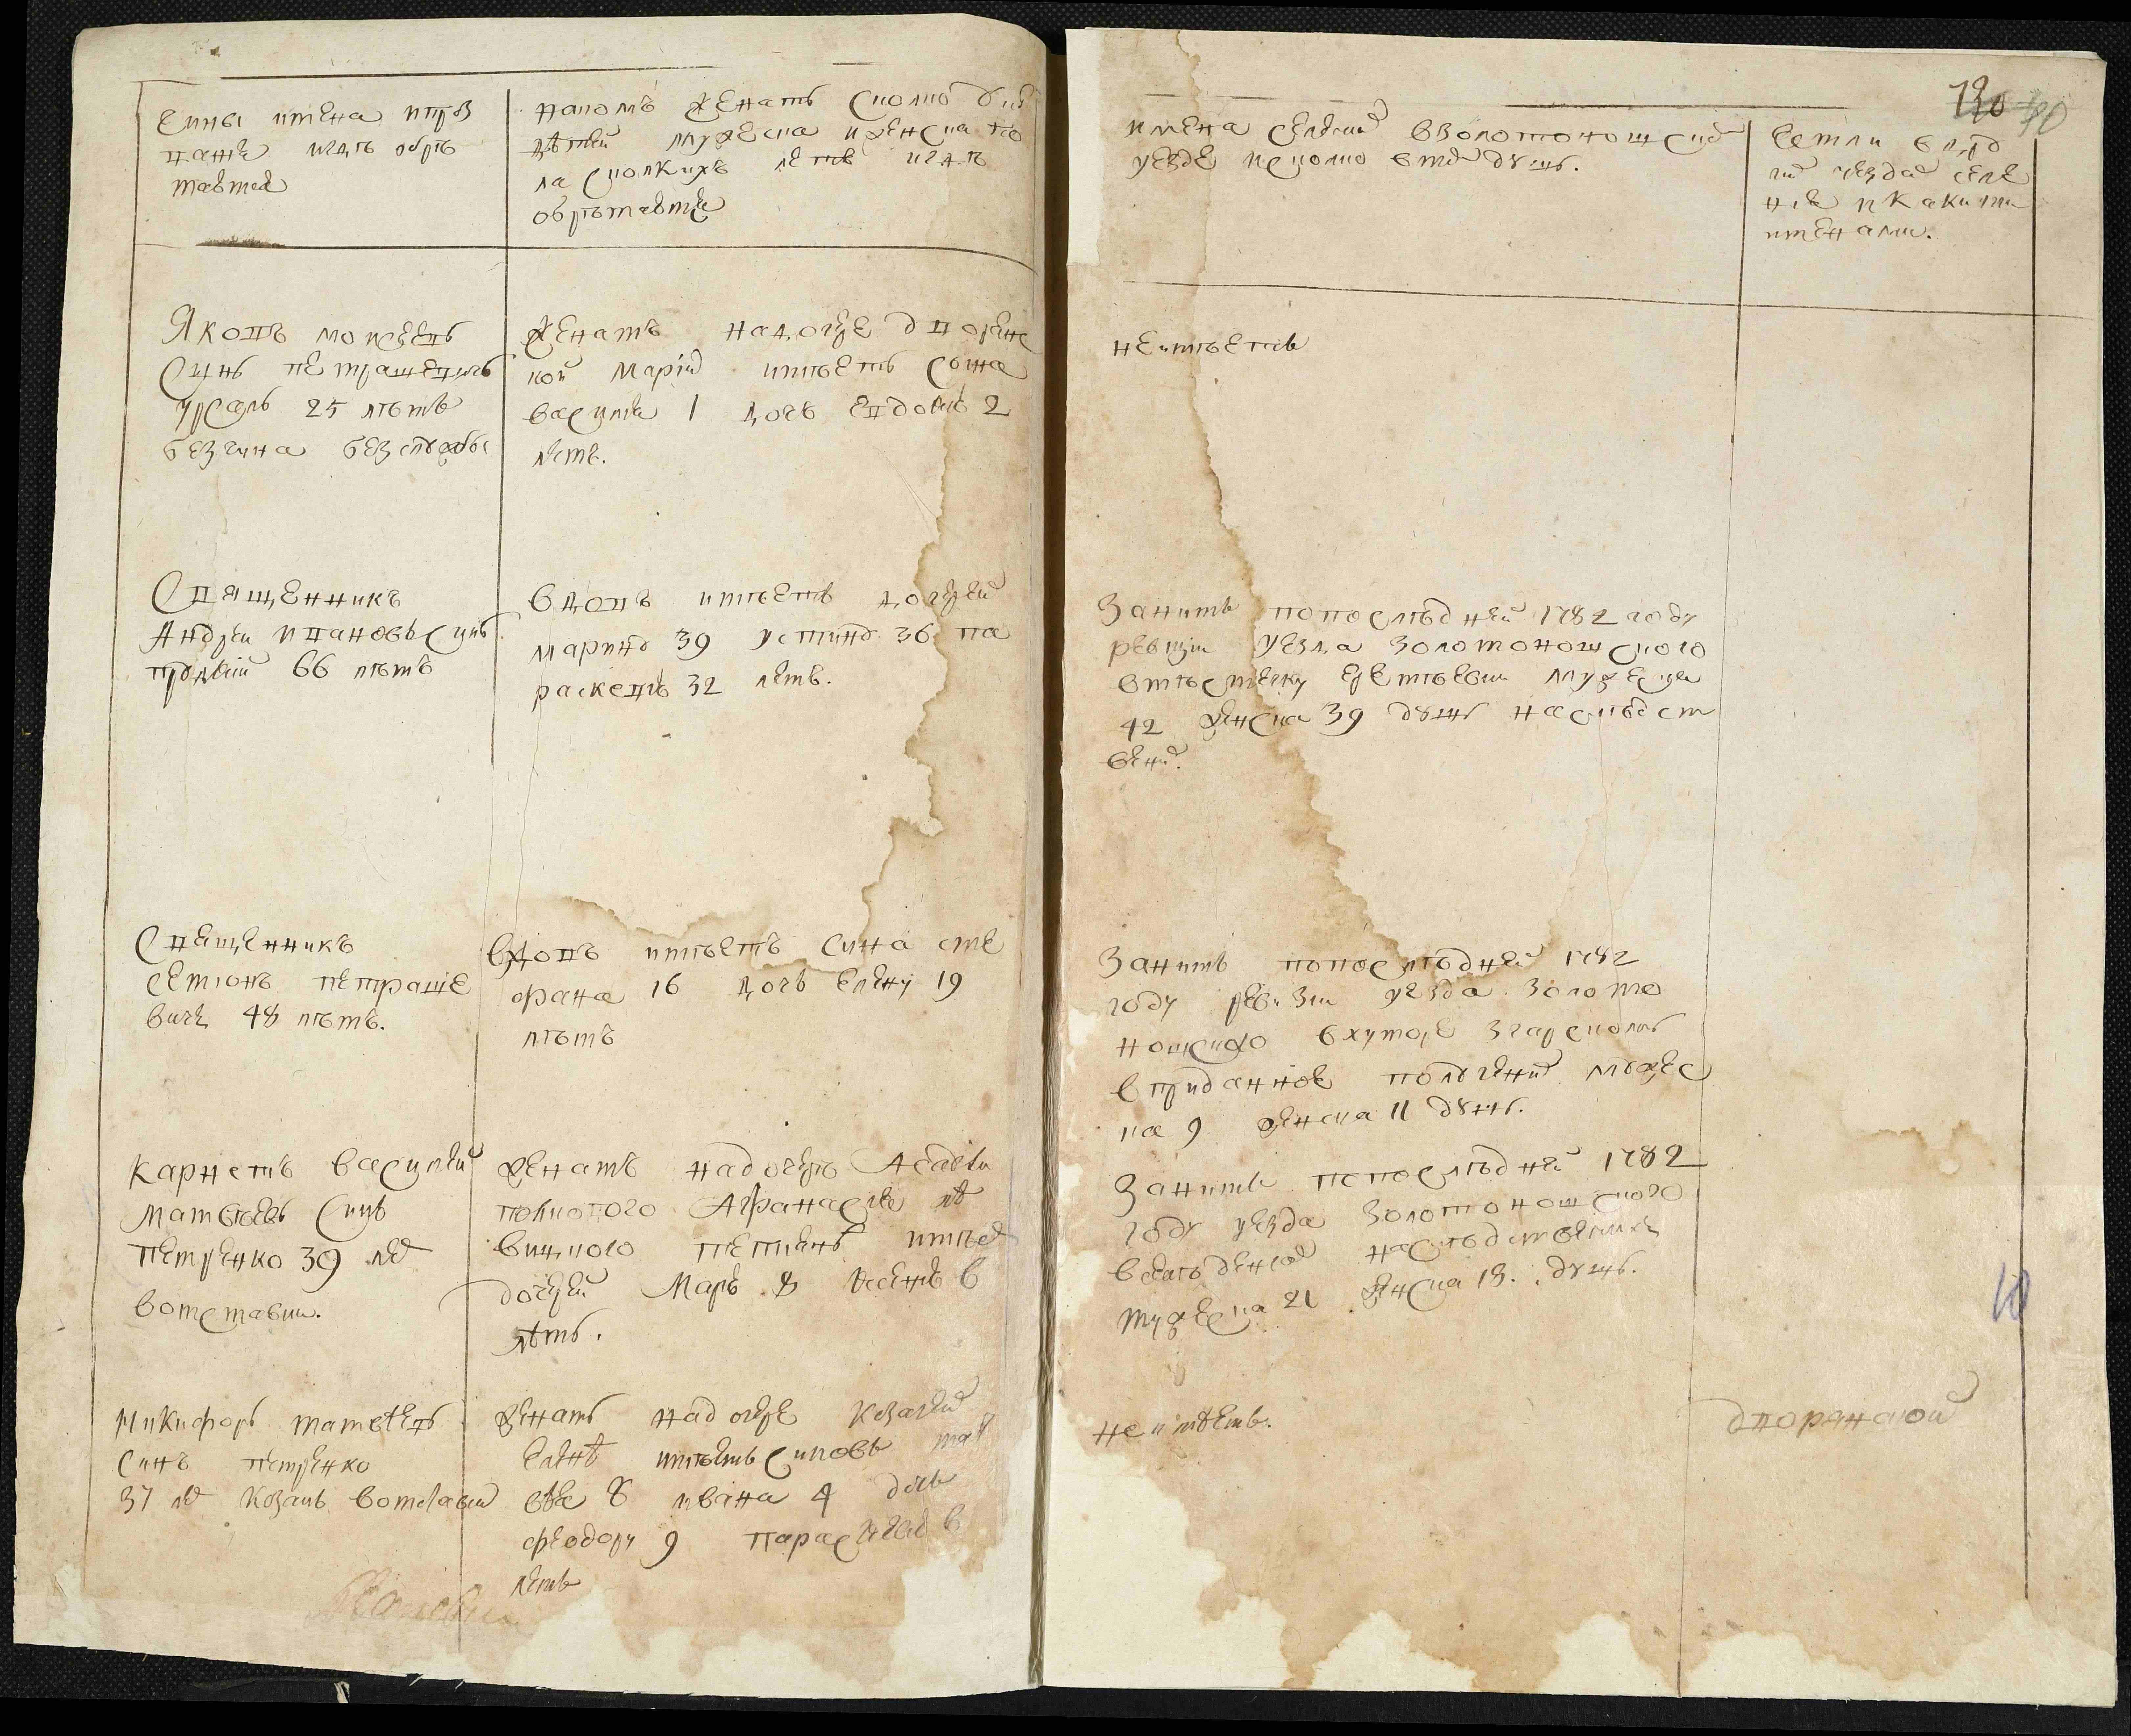 130 70
чины имена и проз
вание и гдѣ обрѣ
тается
на комъ женатъ сколко
детей мужеска и женска по
ла сколкихъ летъ и гдѣ
обрѣтается
имена селений в золотоношском
уезде и сколко в тѣх душъ.
естли в других
уездах селе
ния и какими
именами.
Яковъ моисеевъ
синъ петрашевичъ
25 лѣтъ
без чина без службы
женатъ на дочере дворянс
кой Марии имѣетъ сына
василия 1 дочь евдокию 2
летъ.
не имѣетъ
Священникъ
Андреи ивановъ синъ
66 лѣтъ
вдовъ имѣетъ дочерей
марину 39 устину 36 па
раскевию 32 летъ.
За нимъ по последней 1782 году
ревизии уезда золотоношского
в мѣстечку мужеска
42 женска 39 душъ наследст
вених.
Священникъ
семионъ петраше
вичъ 48 лѣтъ.
вдовъ имѣетъ сина сте
фана 16 дочь елену 19
лѣтъ
За нимъ по последней 1782
году ревизии уезда золото
ношского в хуторе згарском
в приданное полученых мужес
ка 9 женска 11 душъ.
Карнетъ василий
Матвѣевъ синъ
Петренко 39 лѣт
в отставки.
женатъ на дочере
полкового Афанасия
имѣет
дочерей Марю 8
лѣтъ.
За нимъ по последней 1782
году уезда золотоношского
наследственних
мужеска 21 женска 13. душъ.
Никифоръ матвѣевъ
синъ петренко
37 лѣт козакъ в отставки
женатъ на дочере козачей
Елене имѣетъ синовъ мат
вѣя 8 ивана 4 дочь
феодору 9
летъ
не имѣетъ.
дворянской
10